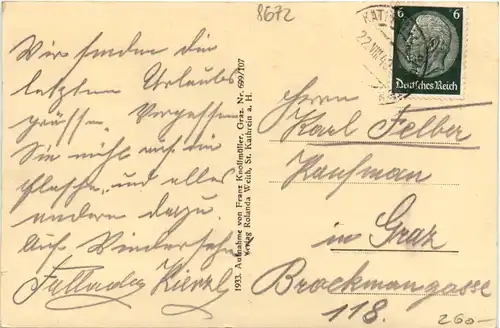 8672
Wir senden die
letzten Urlaubs
grüsse. Vergessen
Sie nicht auf die
Flasche, und alles
andere dazu.
Auf Wiedersehn
1933. Aufnahme von Franz Knollmüller, Graz. Nr. 699/107
Verlag Rolanda Weiß, St. Kathrein a. H.
6 6
Deutsches Reich
Herrn
Karl Felber
Kaufman
in Graz
Brockmangasse
118.
260-